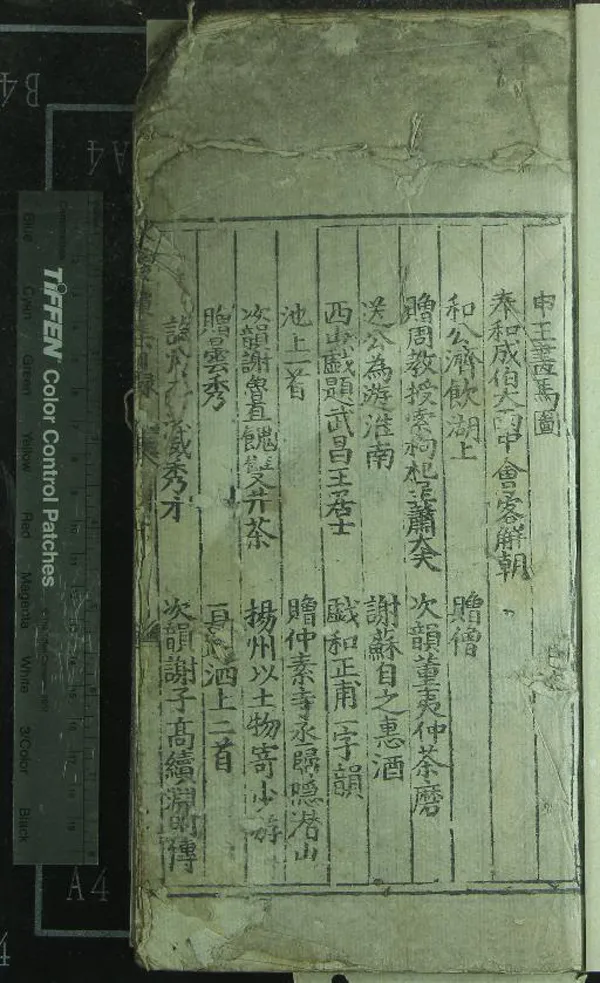 申王畫馬圖
奉和成伯大雨中會客解朝
和公濟飲湖上
贈僧
贈周教授索枸杞呈蕭大夫
次韻董夷仲茶磨
送公為游淮南
謝蘇自之惠酒
西山戲題武昌王居士
戲和正甫一字韻
池上二首
贈仲素寺丞歸隱潜山
次韻謝魯直餽雙井茶
揚州以土物寄少游
贈雲秀
洒上二首
秀才
次韻謝子高續淵明傳
TIFFEN Color Control Patches
Blue
Cyan
Green
Yellow
Red
Magenta
White
3/Color
Black
B4
A4
A4